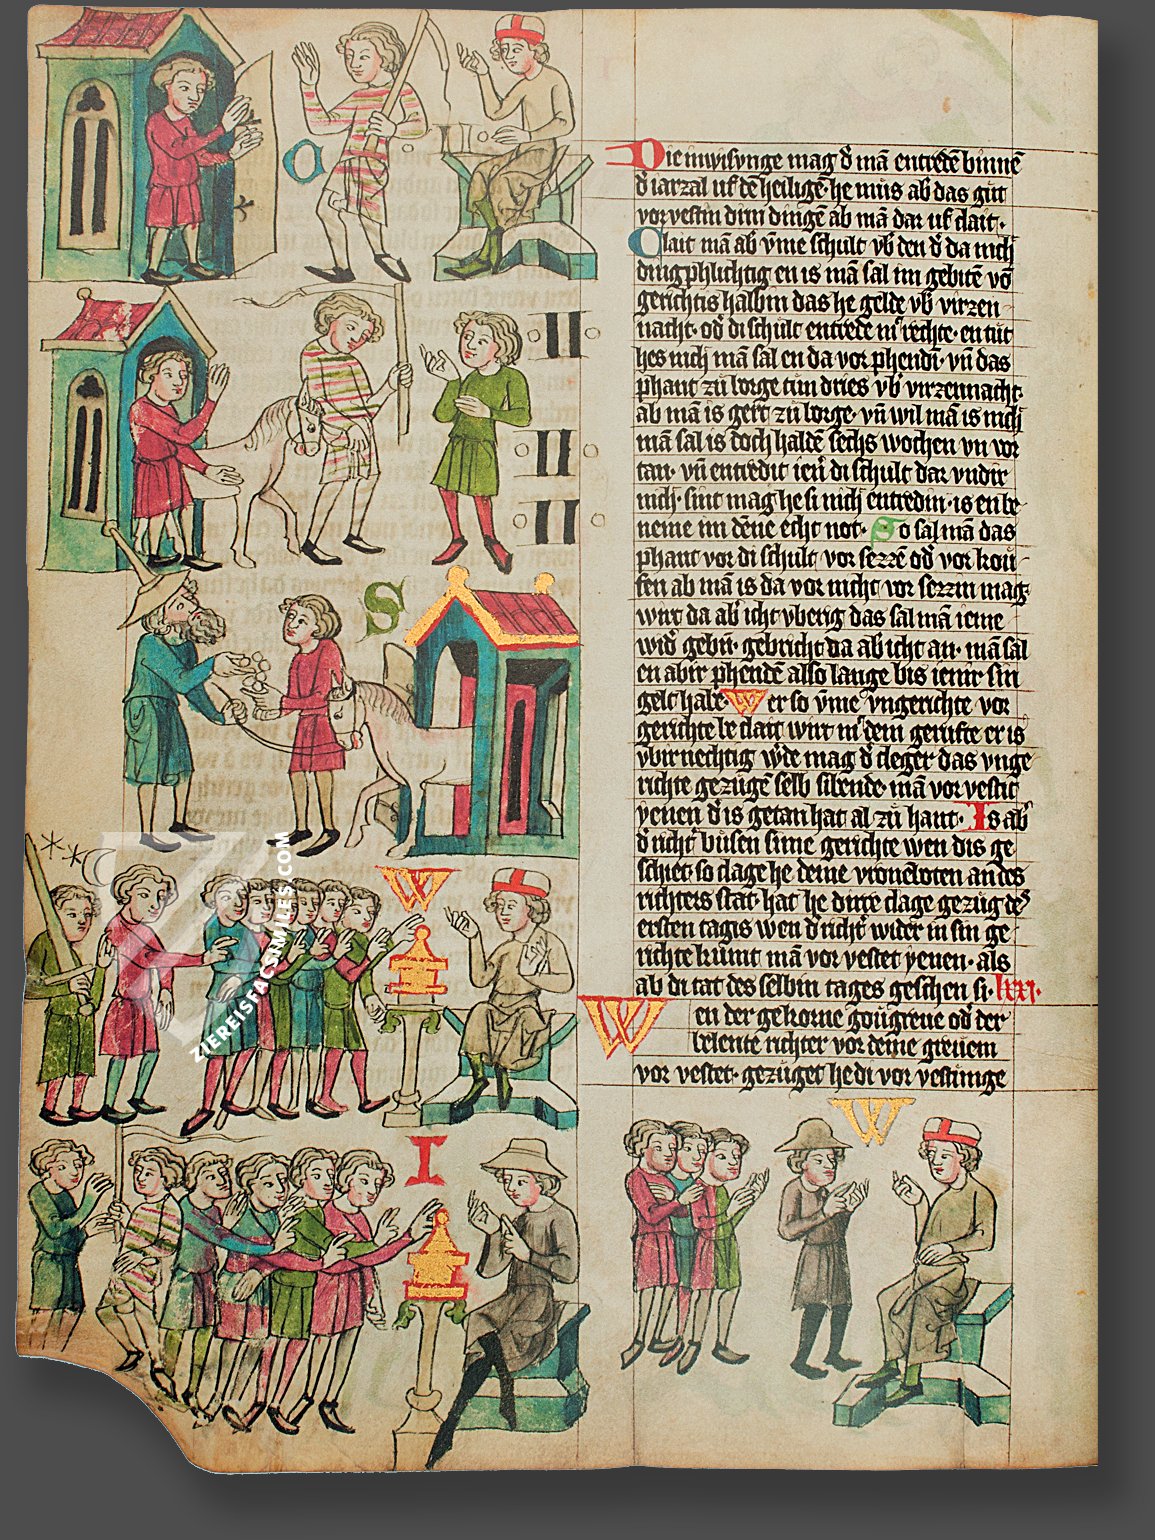 Die inwisunge mag d' mā entredē binnē
d' iarzal uf dē heiligē· he mus ab das gut
vorvestin driu dingē ab mā dar uf clait·
Clait mā ab' ūme schult ub' den d' da nich
dingphlichtig en is mā sal im gebitē vō
gerichtis halbin das he gelde ub' virzen
nacht· od' di schult entrede m' rechte· en tut
hes nich mā sal en da vor phendī· vn̄ das
phant zu borge tun dries ub' virzennacht·
ab mā is gert zu borge· vn̄ wil mā is nich
mā sal is doch haldē sechs wochen vn vor
tan· vn̄ entredit ien' di schult dar undir
nich· sint mag he si nich entredin· is en be
neme im dēne echt not· So sal mā das
phant vor di schult vor sezzē od' vor kou
fen ab mā is da vor nicht vor sezzin mag·
wirt da ab' icht uberig das sal mā ieme
wid' gebin· gebricht da ab' icht an· mā sal
en abir phendē also lange bis ienir sin
gelt habe· Wer so ūme ungerichte vor
gerichte be clait wirt m' dem gerufte er is
ubirnechtig w'de mag d' cleger das unge
richte gezugē selb sibende mā vor vestit
yenen d' is getan hat al zu hant· Is ab'
d' richt' busen sime gerichte wen dis ge
schiet· so clage he deme vroneboten an des
richters stat· hat he dirre clage gezug des
ersten tagis wen d' richt' wider in sin ge
richte kumt mā vor vestet yenen· als
ab di tat des selbin tages geschen si· lxxi·
Wen der gekorne gougreue od' der
belente richter vor deme greuen
vor vestet· gezuget he di vor vestunge
C
S
W
I
W
ZIEREISFACSIMILES.COM